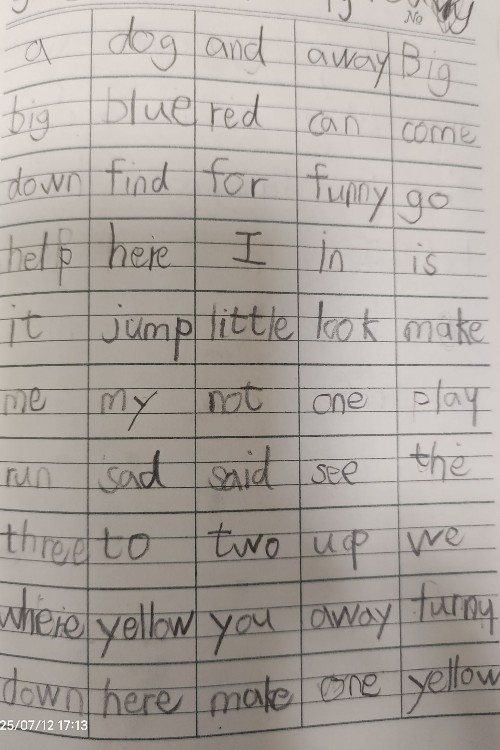 No
a dog and away Big
big blue red can come
down find for funny go
help here I in is
it jump little look make
me my not one play
run sad said see the
three to two up we
where yellow you away funny
down here make one yellow
25/07/12 17:13